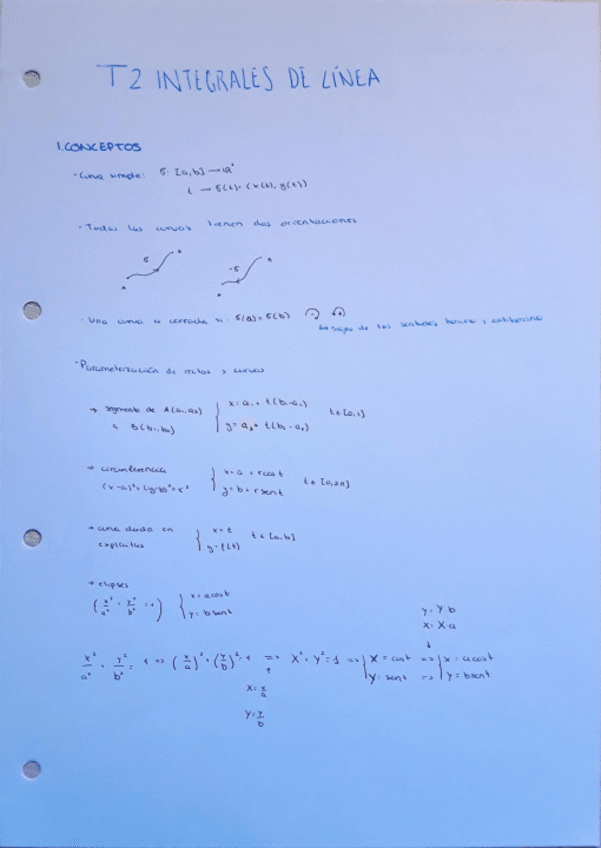 T2 INTEGRALES DE LÍNEA
1. CONCEPTOS
· Curva simple: σ: [a,b] → ℝ²
t → σ(t) = (x(t), y(t))
· Todas las curvas tienen dos orientaciones
σ -σ
· Una curva es cerrada si: σ(a) = σ(b)
de los sentidos horario y antihorario
· Parametrización de rectas y curvas
→ segmento de A(a₁,a₂) { x = a₁ + t(b₁-a₁) t ∈ [0,1]
a B(b₁,b₂) y = a₂ + t(b₂-a₂)
→ circunferencia { x = a + r cos t t ∈ [0,2π]
(x-a)² + (y-b)² = r² y = b + r sen t
→ curva dada en { x = t t ∈ [a,b]
explícitas y = f(t)
→ elipses { x = a cos t
(x²/a² + y²/b² = 1) y = b sen t
y = Y b
x = X a
x²/a² + y²/b² = 1 => (x/a)² + (y/b)² = 1 => X² + Y² = 1 => | X = cos t => | x = a cos t
Y = sen t => | y = b sen t
X = x/a
Y = y/b